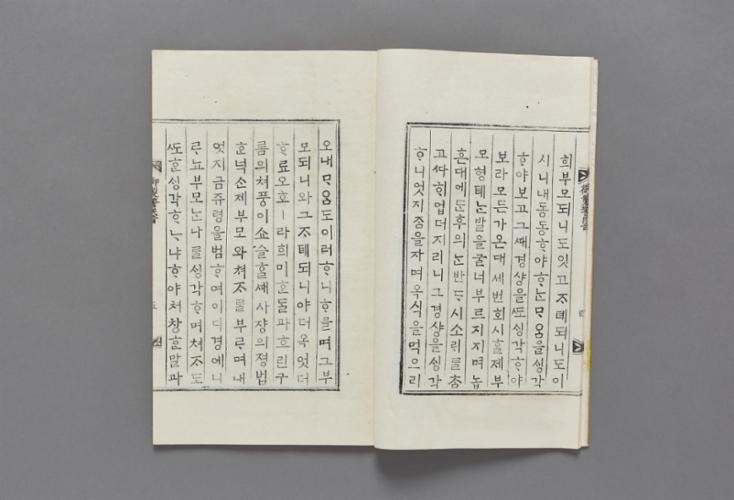 희부모되니도잇고ᄌᆞ뎨되니도이
시니내동동ᄒᆞ야ᄒᆞᄂᆞᆫᄆᆞᄋᆞᆷ을ᄉᆡᆼ각
ᄒᆞ야보고그ᄯᅢ경샹을ᄯᅩᄉᆡᆼ각ᄒᆞ야
보라모든가온대세번회시ᄒᆞᆯ제부
모형뎨ᄂᆞᆫ발을굴너부르지지며놉
흔대에ᄃᆞᆫ후의ᄂᆞᆫ반ᄃᆞ시소ᄅᆡᄅᆞᆯ춤
고ᄯᅡ희업더지리니그경샹을ᄉᆡᆼ각
ᄒᆞ니엇지ᄌᆞᆷ을자며옥식을먹으리
오내ᄆᆞᄋᆞᆷ도이러ᄒᆞ니ᄒᆞᄆᆞᆯ며그부
모되니와그ᄌᆞ뎨되니야더옥엇더
ᄒᆞ료오호ㅣ라희미ᄒᆞᆫᄃᆞᆯ과흐린구
룸의쳐풍이쇼슬ᄒᆞᆯᄯᅢ사쟝의졍법
ᄒᆞᆫ넉손제부모와쳐ᄌᆞᄅᆞᆯ부르며내
엇지금쥬령을범ᄒᆞ여이디경에니
ᄅᆞᆫ뇨부모ᄂᆞᆫ나ᄅᆞᆯᄉᆡᆼ각ᄒᆞ며쳐ᄌᆞ도
ᄯᅩᄒᆞᆫᄉᆡᆼ각ᄒᆞᄂᆞ냐ᄒᆞ야쳐창ᄒᆞᆫ말과
五